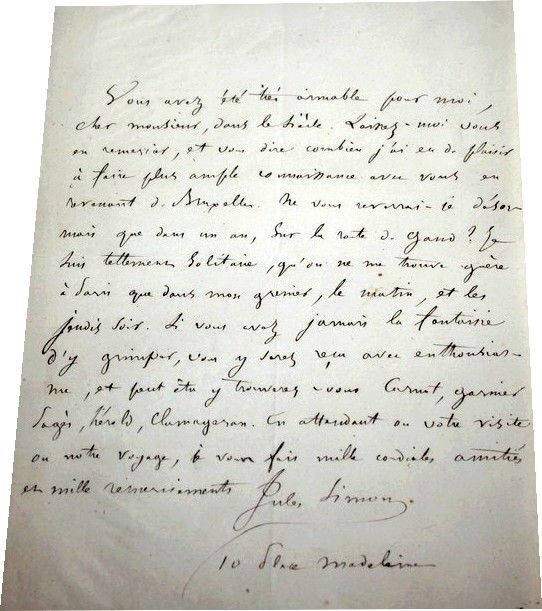 Vous avez été très aimable pour moi,
cher monsieur, dans le Siècle. Laissez-moi vous
en remercier, et vous dire combien j'ai eu de plaisir
à faire plus ample connaissance avec vous en
revenant de Bruxelles. Ne vous reverrai-je désor-
mais que dans un an, sur la route de Gand? Je
suis tellement solitaire, qu'on ne me trouve guère
à Paris que dans mon grenier, le matin, et les
jeudis soir. Si vous avez jamais la fantaisie
d'y grimper, vous y serez reçu avec enthousias-
me, et peut être y trouverez-vous Carnot, garnier
Pagès, hérold, Clamageran. En attendant ou votre visite
ou notre voyage, je vous fais mille cordiales amitiés
et mille remerciements Jules Simon.
10 place madeleine